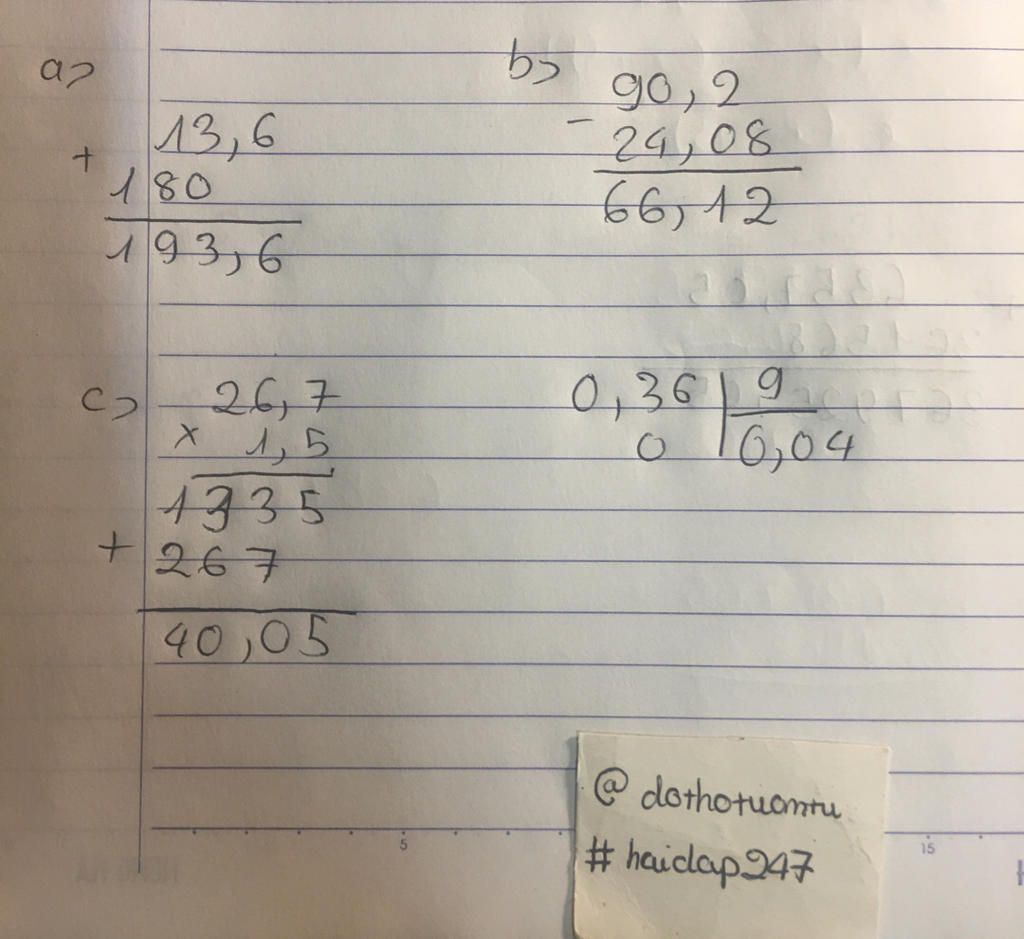 a>
13,6
+
180
193,6
b>
90,2
-
24,08
66,12
c>
26,7
x 1,5
1335
+ 267
40,05
0,36 | 9
0 | 0,04
5
15
@ dothotuomtu
# hoidap247